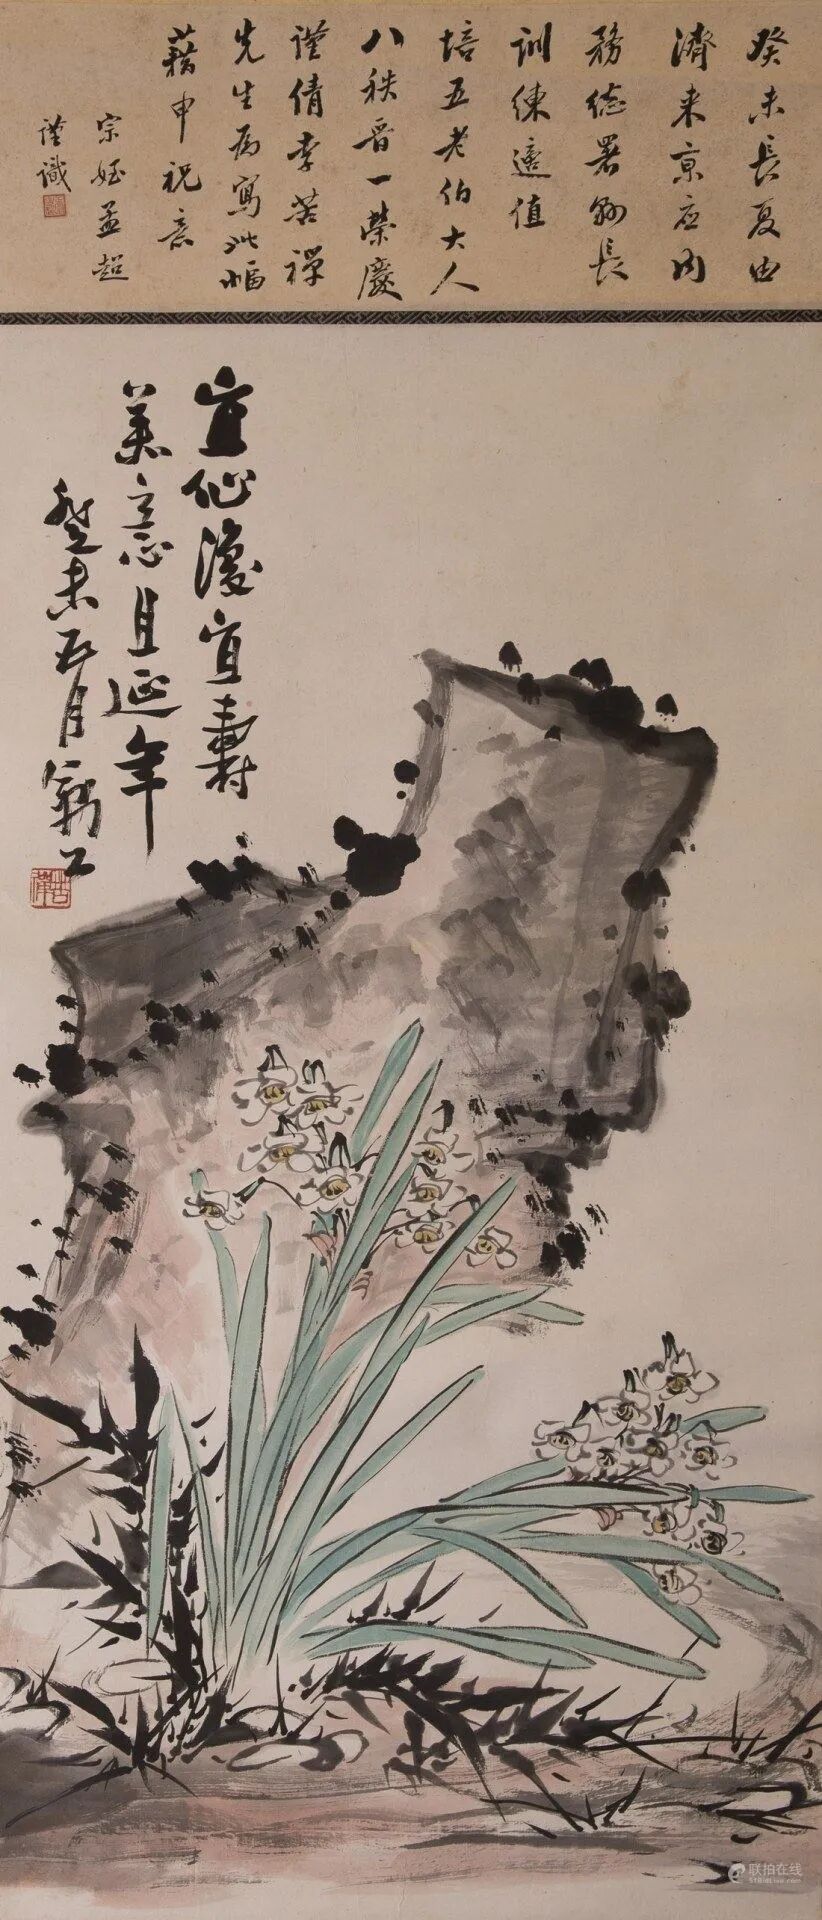 癸未長夏由
濟来京应内
務総署縣長
訓練適值
培五老伯大人
八秩晋一榮慶
謹倩李苦禪
先生為寫此幅
藉申祝意
宗姪孟超
謹識
宜仙復宜壽
美意且延年
癸未五月勵公
苦禪
联拍在线